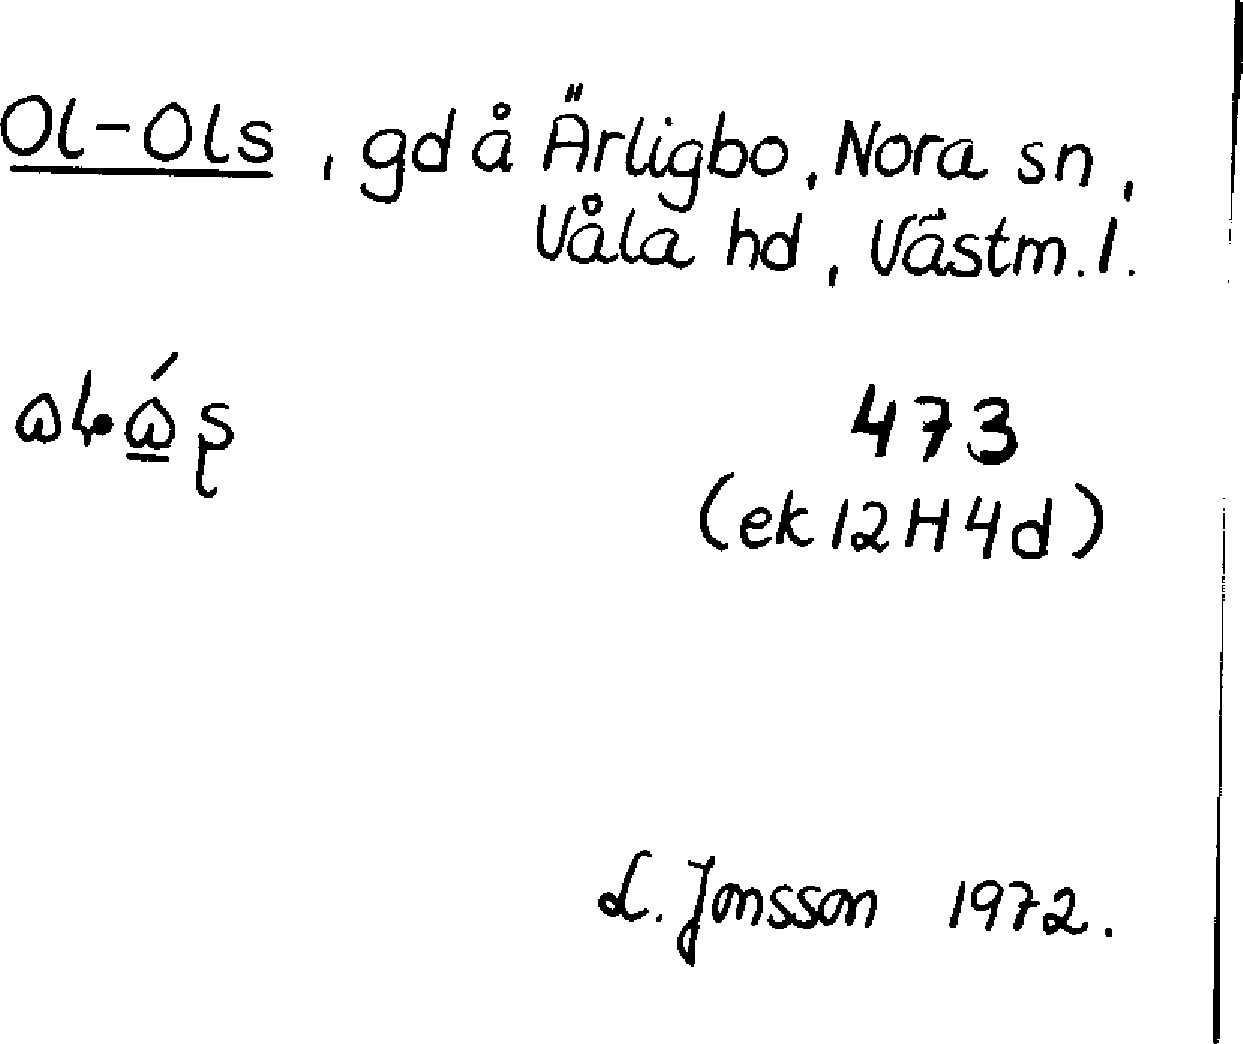 Ol-Ols, gd å Ärligbo, Nora sn,
Våla hd, Västm. l.
473
(ek 12H4d)
L. Jonsson 1972.